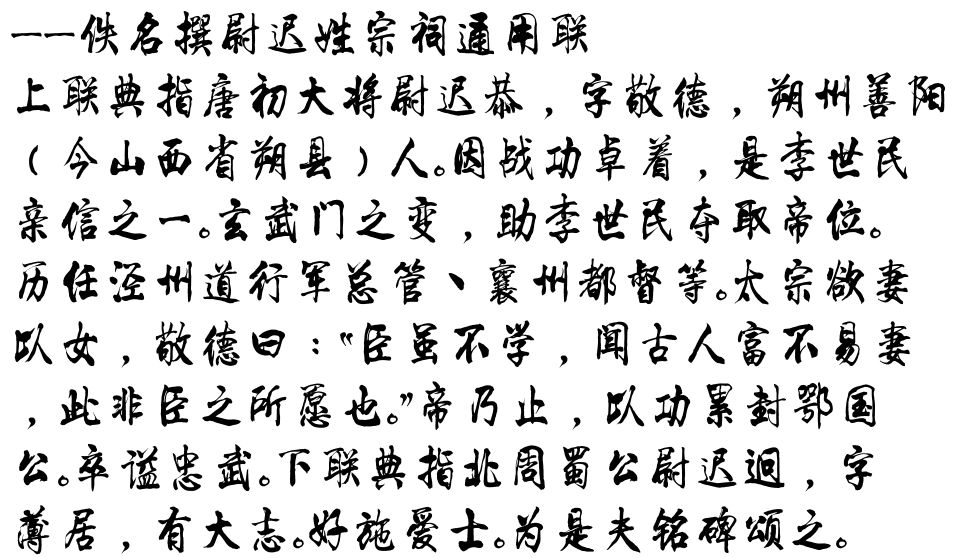 ——佚名撰尉迟姓宗祠通用联
上联典指唐初大将尉迟恭，字敬德，朔州善阳
（今山西省朔县）人。因战功卓着，是李世民
亲信之一。玄武门之变，助李世民夺取帝位。
历任泾州道行军总管、襄州都督等。太宗欲妻
以女，敬德曰：“臣虽不学，闻古人富不易妻
，此非臣之所愿也。”帝乃止，以功累封鄂国
公。卒谥忠武。下联典指北周蜀公尉迟迥，字
薄居，有大志。好施爱士。为是夫铭碑颂之。